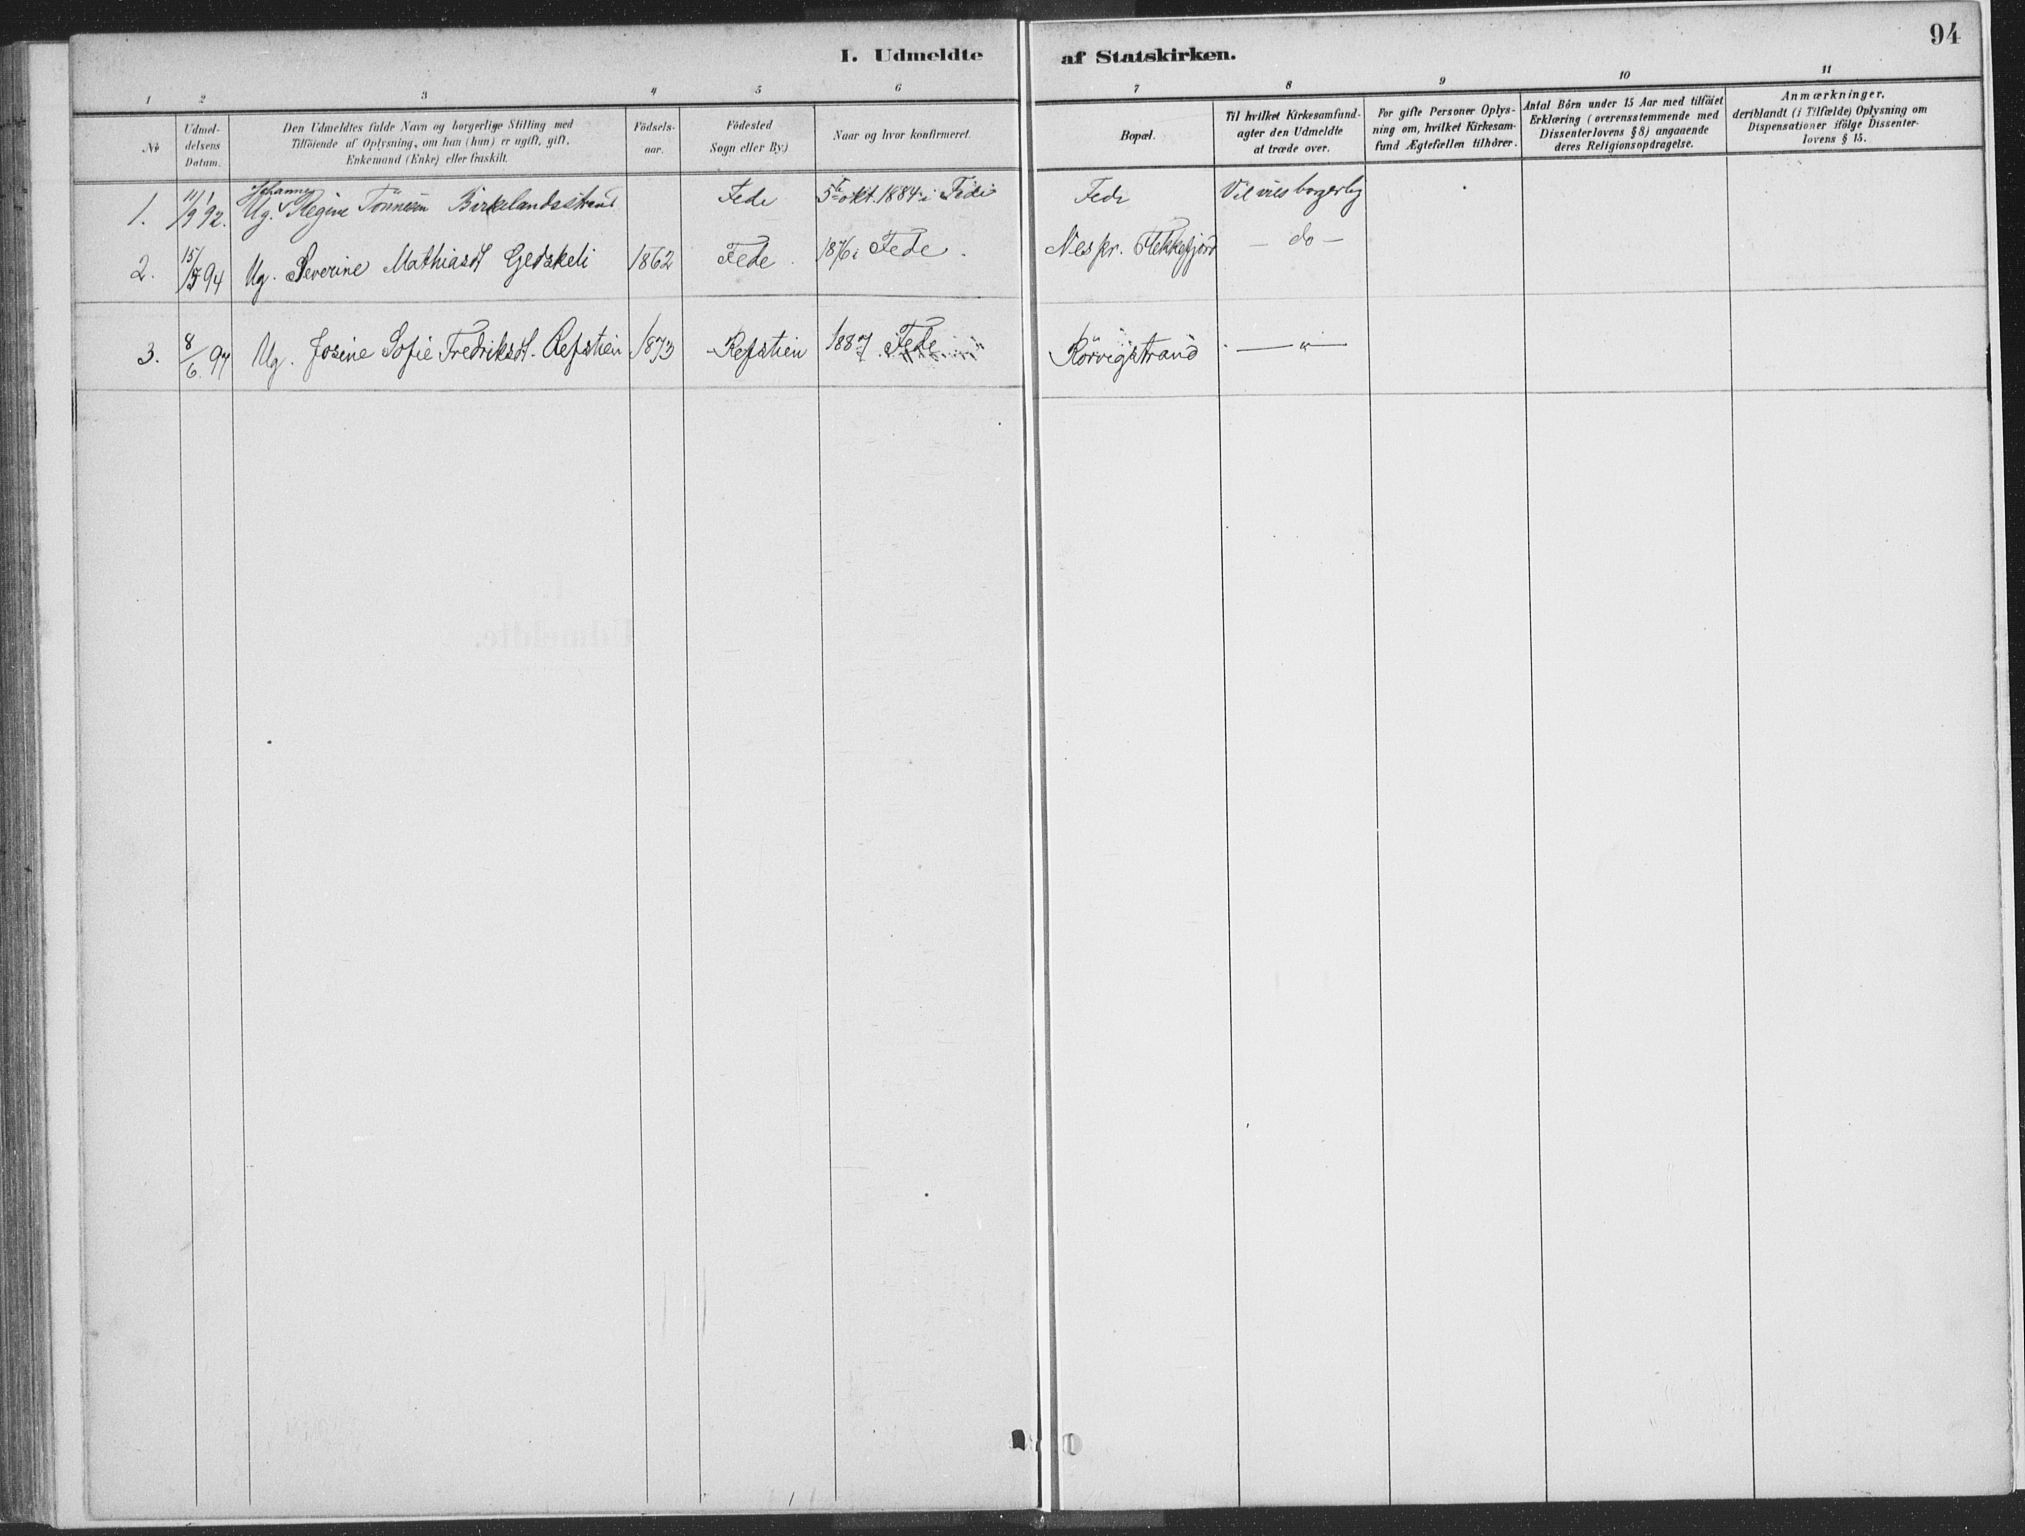 94
I. Udmeldte af Statskirken.
1 2 3 4 5 6 7 8 9 10 11
No
Udmel-
delsens
Datum.
Den Udmeldtes fulde Navn og borgerlige Stilling med
Tilföiende af Oplysning, om han (hun) er ugift, gift,
Enkemand (Enke) eller fraskilt.
Födsels-
aar.
Födested
Sogn eller By)
Naar og hvor konfirmeret.
Bopæl.
Til hvilket Kirkesamfund-
agter den Udmeldte
at træde over.
For gifte Personer Oplys-
ning om, hvilket Kirkesam-
fund Ægtefællen tilhörer.
Antal Börn under 15 Aar med tilföiet
Erklæring (overensstemmende med
Dissenterlovens § 8) angaaende
deres Religionsopdragelse.
Anmærkninger,
deriblandt (i Tilfælde) Oplysning om
Dispensationer ifölge Dissenter-
lovens § 15.
Johanne
1. 92. Ug. Regine Tönnesen Birkelandsstrand Fede 5te okt. 1884 i Fede Fede Vil vies borgerlig
2. 15/5 94 Ug. Severine Mathiasdt Gedskeli 1862 Fede. 1876 i Fede. Nes pr. Flekkefjord — do —
3. 8/6 97 Ug. Josine Sofie Fredriksdt. Refstien 1873 Refstien 1887 i Fede Rörvigstrand — " —